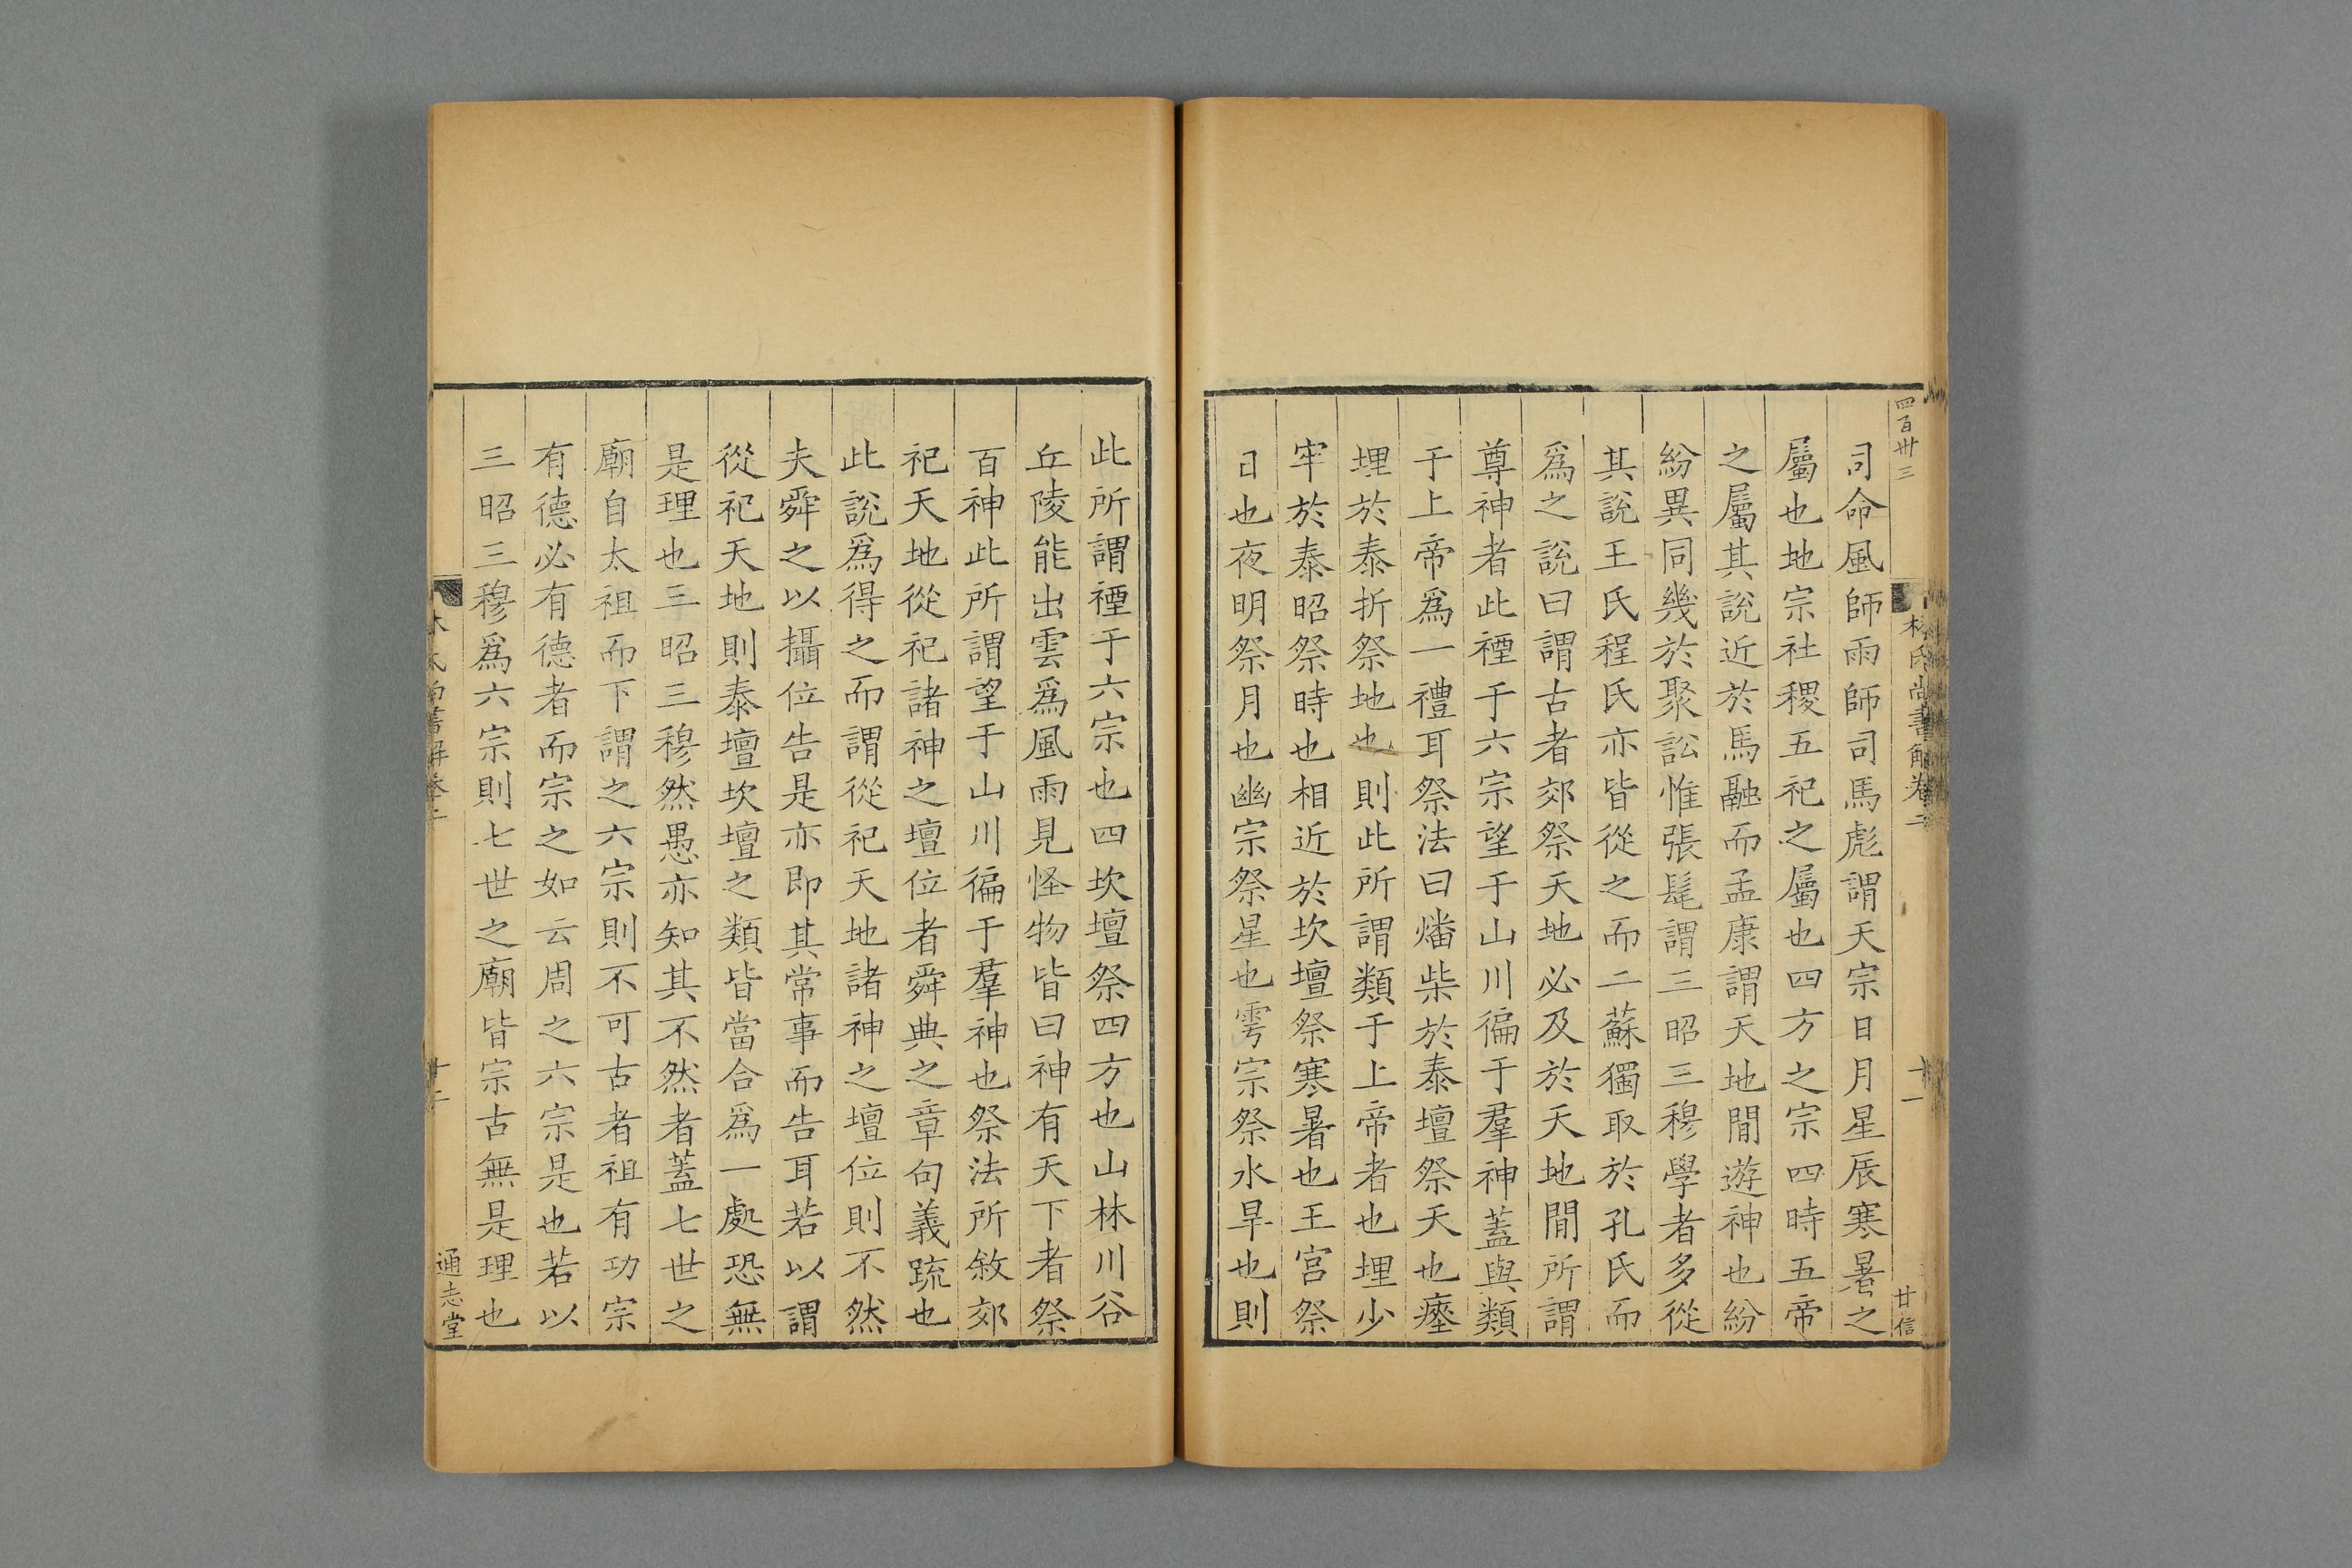 四百卅三
林氏尚書解卷二
十一
廿信
司命風師雨師司馬彪謂天宗日月星辰寒暑之
屬也地宗社稷五祀之屬也四方之宗四時五帝
之屬其說近於馬融而孟康謂天地間遊神也紛
紛異同幾於聚訟惟張髦謂三昭三穆學者多從
其說王氏程氏亦皆從之而二蘇獨取於孔氏而
爲之說曰謂古者郊祭天地必及於天地間所謂
尊神者此禋于六宗望于山川徧于羣神蓋與類
于上帝爲一禮耳祭法曰燔柴於泰壇祭天也瘞
埋於泰折祭地也則此所謂類于上帝者也埋少
牢於泰昭祭時也相近於坎壇祭寒暑也王宮祭
日也夜明祭月也幽宗祭星也雩宗祭水旱也則
此所謂禋于六宗也四坎壇祭四方也山林川谷
丘陵能出雲爲風雨見怪物皆曰神有天下者祭
百神此所謂望于山川徧于羣神也祭法所敘郊
祀天地從祀諸神之壇位者舜典之章句義疏也
此說爲得之而謂從祀天地諸神之壇位則不然
夫舜之以攝位告是亦即其常事而告耳若以謂
從祀天地則泰壇坎壇之類皆當合爲一處恐無
是理也三昭三穆然愚亦知其不然者蓋七世之
廟自太祖而下謂之六宗則不可古者祖有功宗
有德必有德者而宗之如云周之六宗是也若以
三昭三穆爲六宗則七世之廟皆宗古無是理也
尚書解卷二
通志堂